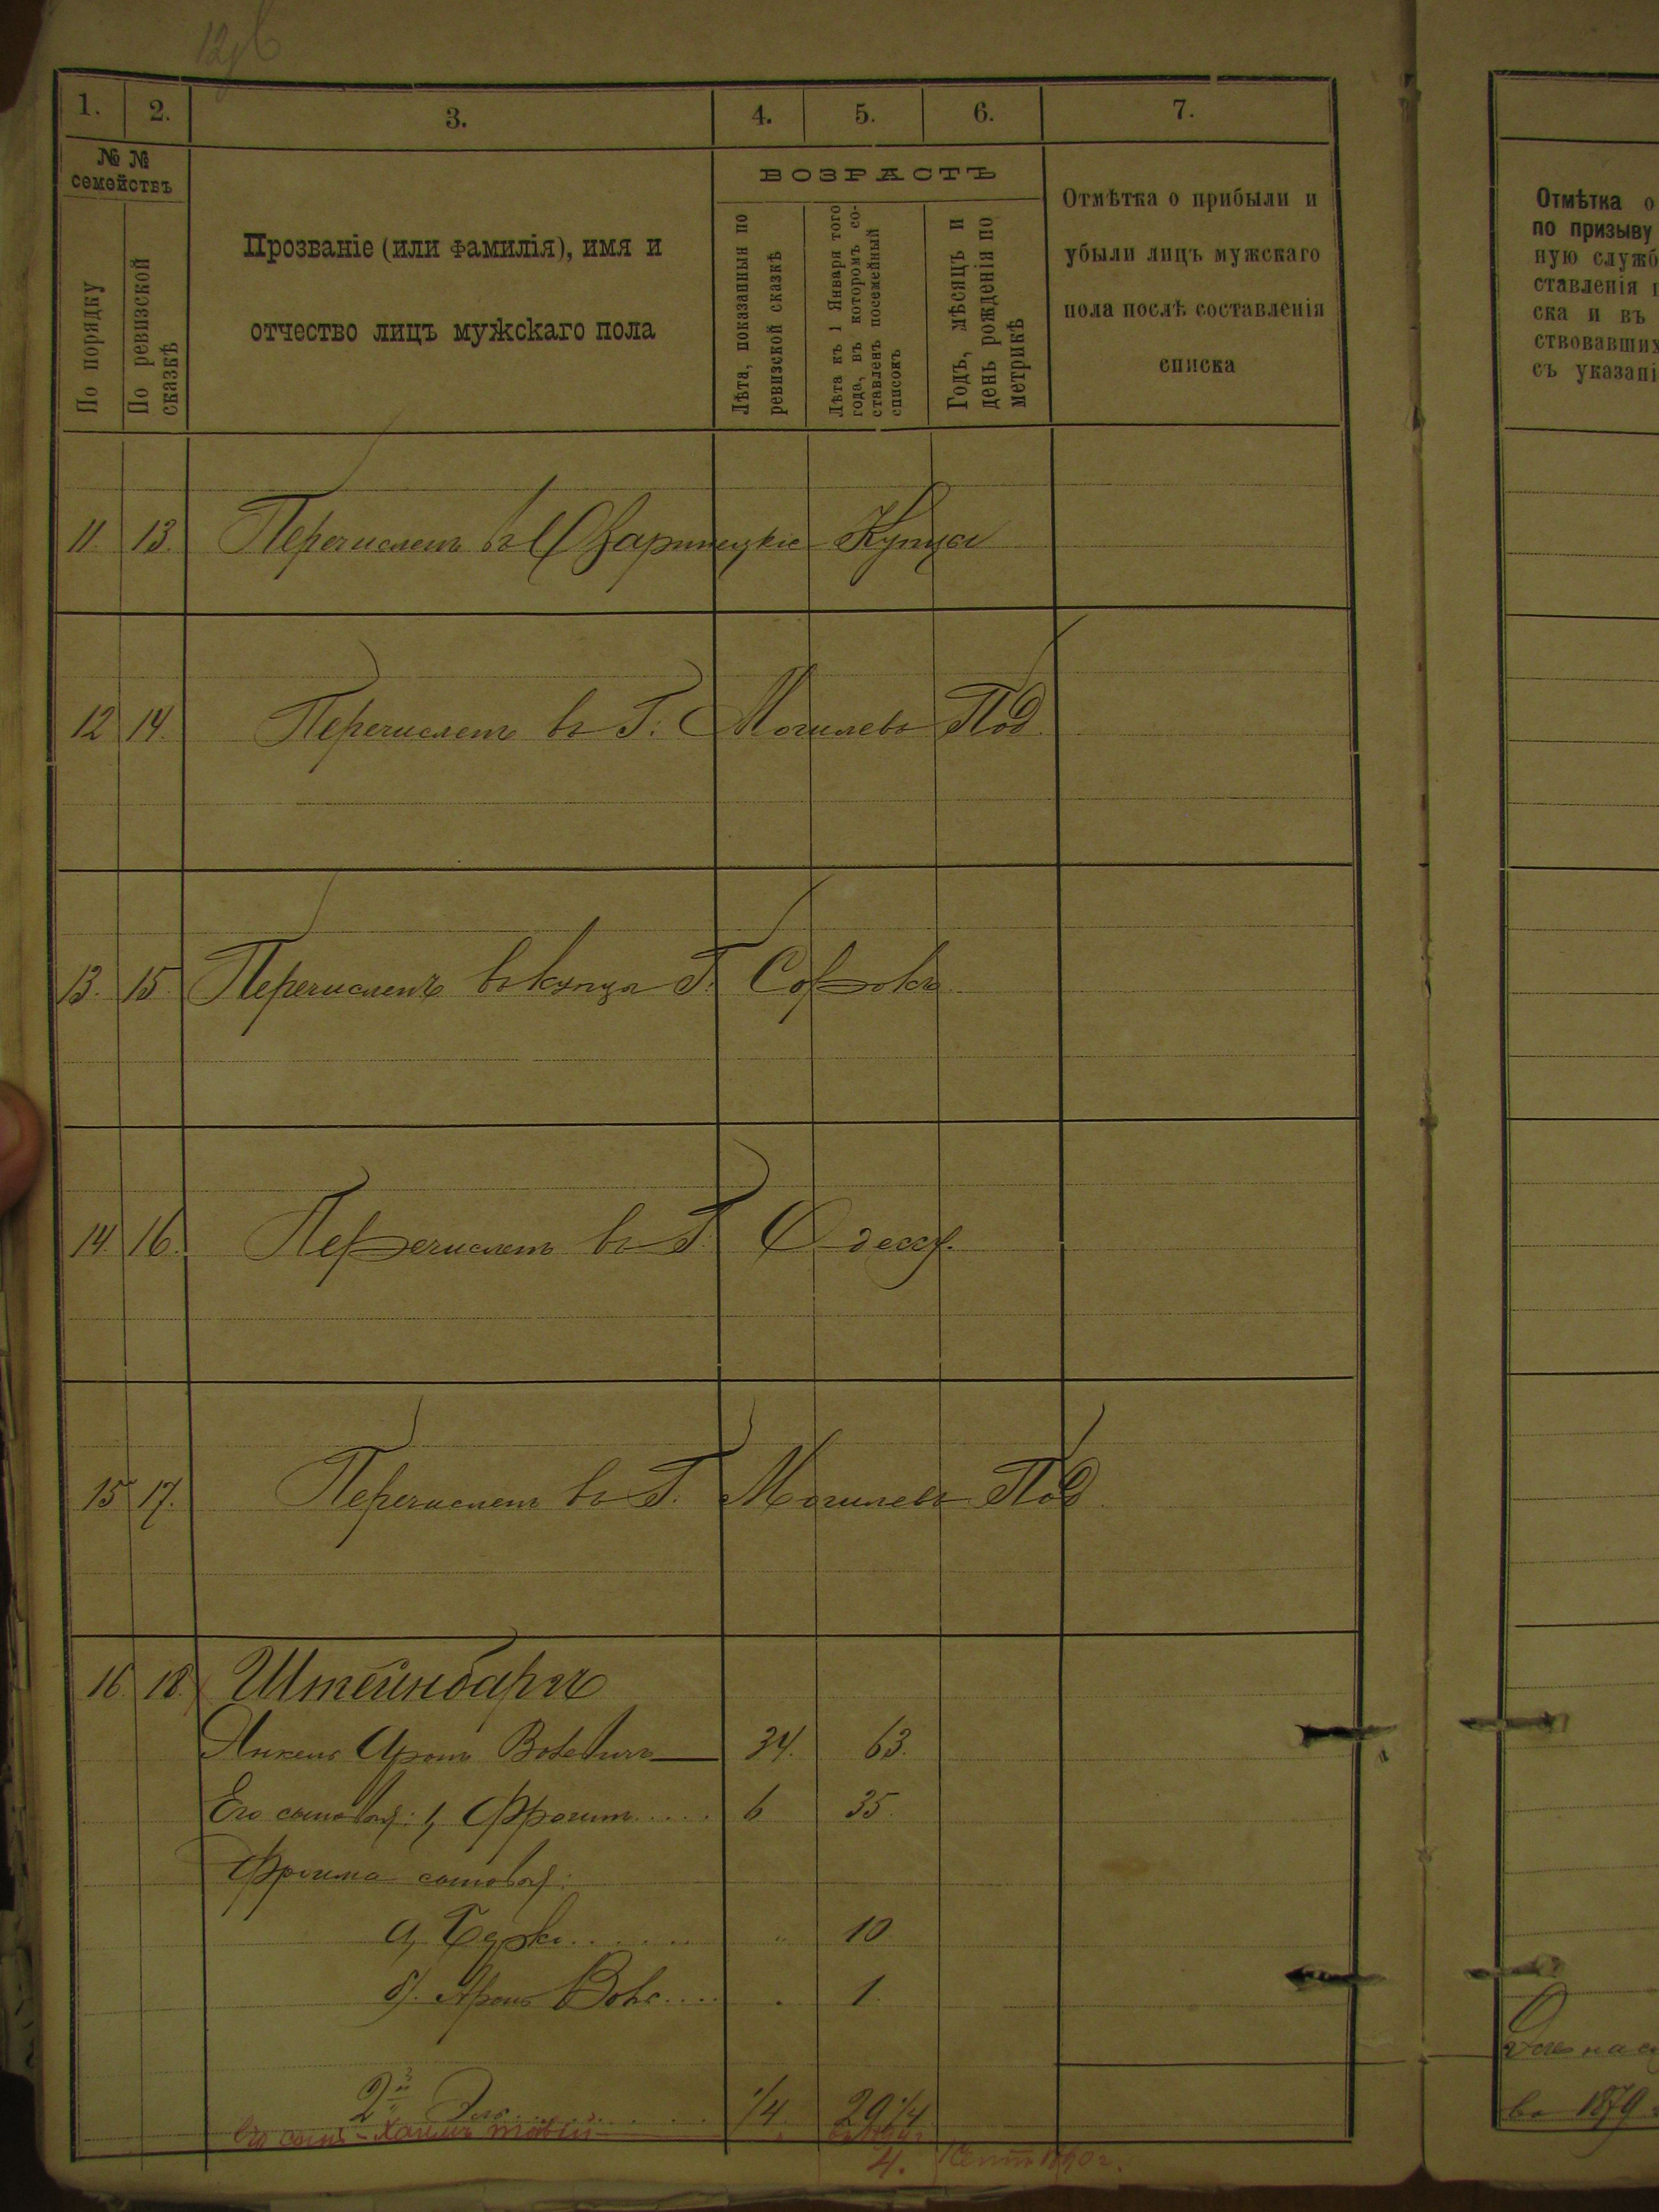 1. 2. 3. 4. 5. 6. 7.
№ №
семействъ
По порядку
По ревизской
сказкѣ
Прозваніе (или фамилія), имя и
отчество лицъ мужскаго пола
ВОЗРАСТЪ
Лѣта, показанныя по
ревизской сказкѣ
Лѣта къ 1 Января того
года, въ которомъ со-
ставленъ посемейный
списокъ
Годъ, мѣсяцъ и
день рожденія по
метрикѣ
Отмѣтка о прибыли и
убыли лицъ мужскаго
пола послѣ составленія
списка
11. 13. Перечисленъ въ Купцы
12 14. Перечисленъ въ Г. Могилевъ Под.
13. 15. Перечисленъ въ купцы Г. Сороки
14. 16. Перечисленъ въ Г. Одессу.
15 17. Перечисленъ въ Г. Могилевъ Под.
16. 18. Штейнбаргъ
Янкель Аронъ 34. 63.
Его сыновья: 1, Фроимъ 6 35.
Фроима сыновья:
а, 10
б). Аронъ 1.
2й 1/4 29 1/4
Его сынъ - Хаимъ
4. 1 Сент. 1890 г.
Отмѣтка о
по призыву
ную служб
ставленія
ска и въ
ствовавших
съ указані
въ 1879